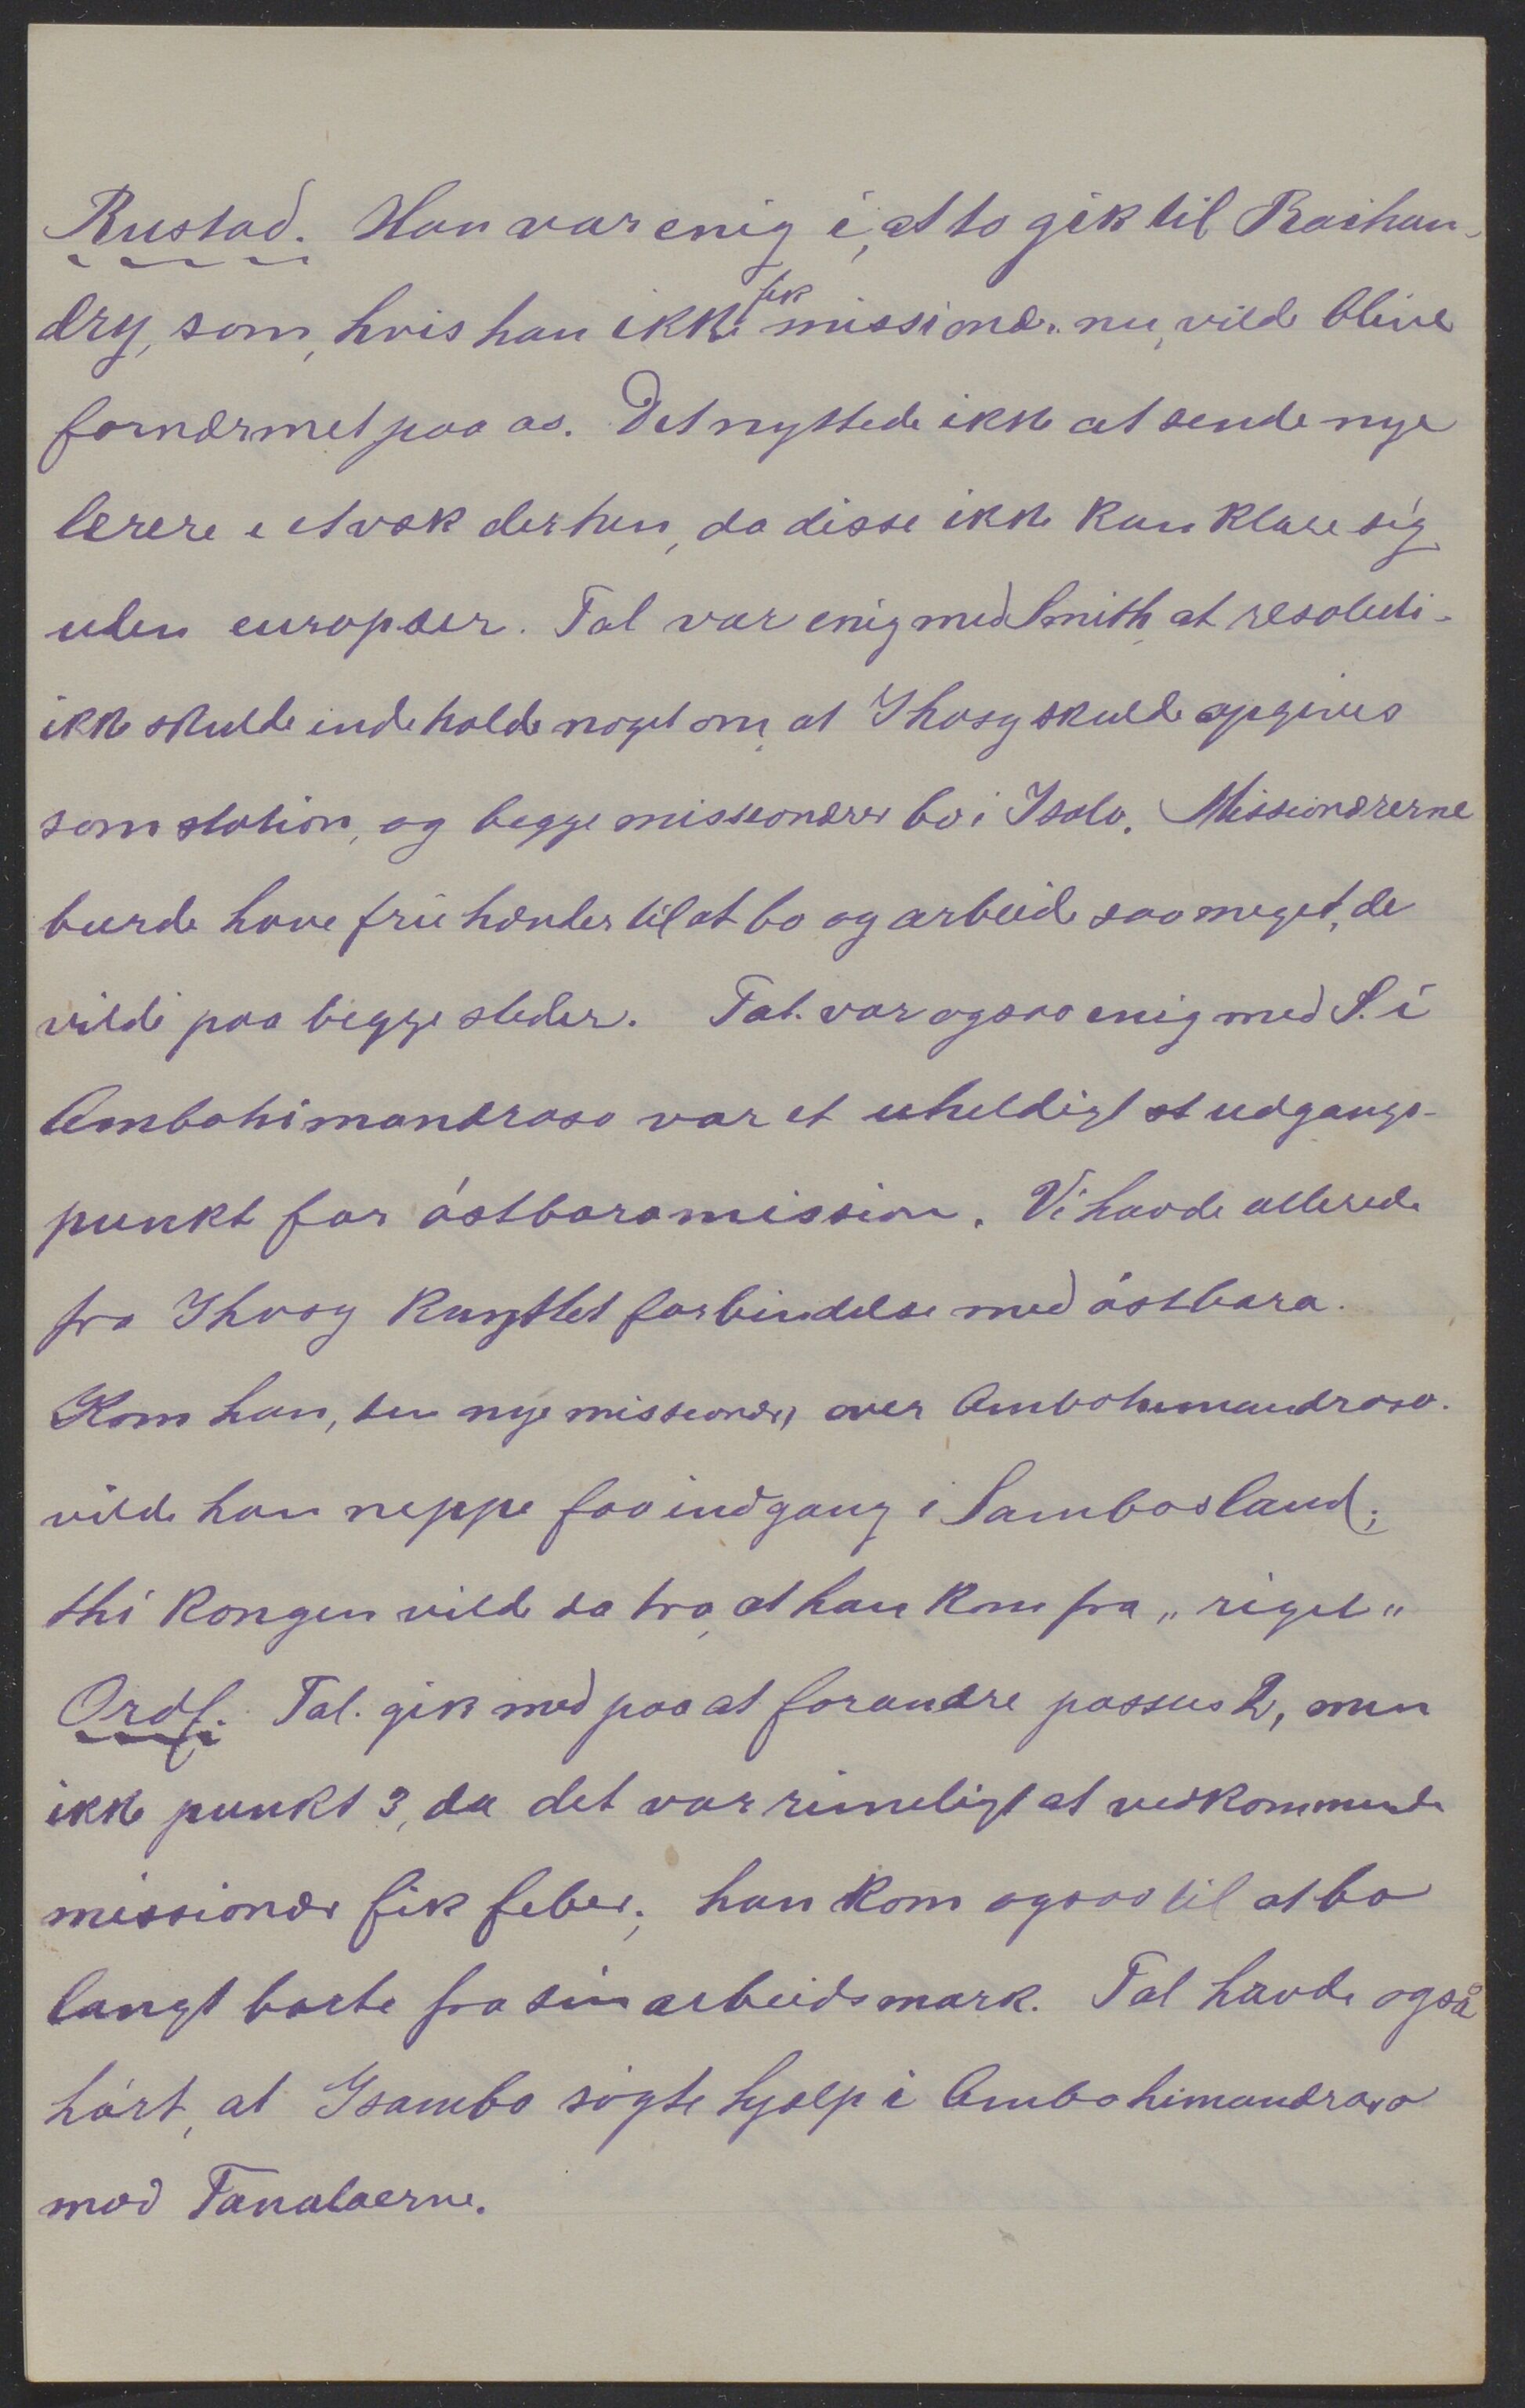 Rustad. Han var enig i, at to gik til Raihan-
dry, som, hvis han ikke fik missionær nu, vilde blive
fornærmet paa os. Det nyttede ikke at sende nye
lærere i et væk derhen, da disse ikke kan klare sig
uden europæer. Tal var enig med Smith, at resoluti-
ikke skulde indeholde noget om, at Ihosy skulde opgives
som station, og begge missionærer bo i Isolo. Missionærerne
burde have frie hænder til at bo og arbeide saa meget, de
vilde paa begge steder. Tal. var ogsaa enig med S. i
Ambohimandroso var et uheldigt st udgangs-
punkt for östbaramission. Vi havde allerede
fra Ihosy knyttet forbindelse med östbara.
Kom han, den nye missionær, over Ambohimandroso.
vilde han neppe faa indgang i Sambosland;
thi kongen vilde da tro, at han kom fra „riget"
Ordf. Tal. gik med paa at forandre passus 2, men
ikke punkt 3, da det var rimeligt at vedkommende
missionær fik feber; han kom ogsaa til at bo
langt borte fra sin arbeidsmark. Tal havde også
hört, at Isambo sögte hjælp i Ambohimandroso
mod Tanalaerne.